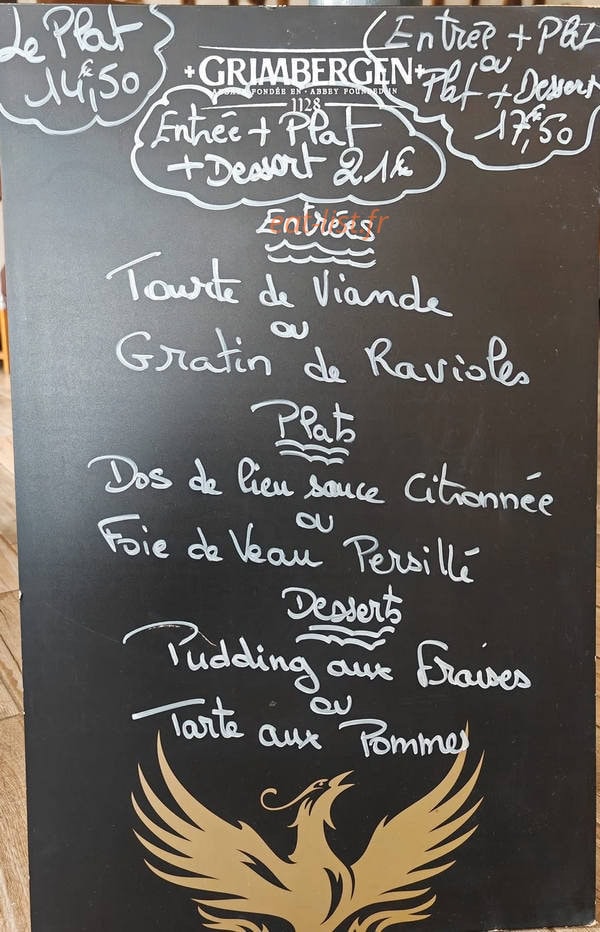 Le Plat
14€,50
Entrée + Plat
ou
Plat + Dessert
17€,50
GRIMBERGEN
ABBAYE FONDÉE EN · ABBEY FOUNDED IN
1128
Entrée + Plat
+ Dessert 21€
Entrées
eat-list.fr
Tourte de Viande
ou
Gratin de Ravioles
Plats
Dos de lieu sauce Citronnée
ou
Foie de Veau Persillé
Desserts
Pudding aux Fraises
ou
Tarte aux Pommes